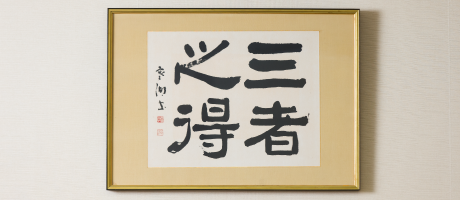 三者
之得